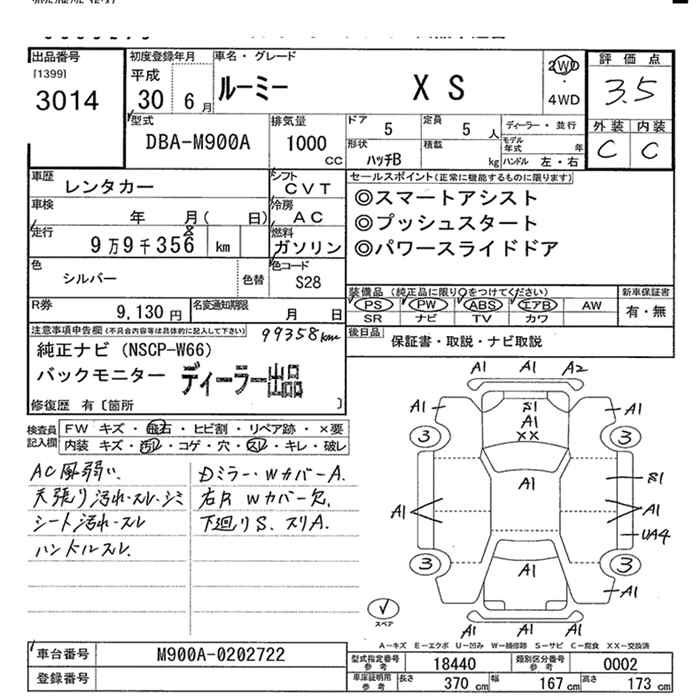 出品番号
[1399]
3014
初度登録年月
平成
30 6月
車名・グレード
ルーミー X S
2WD
・
4WD
評価点
3.5
外装 内装
C C
型式
DBA-M900A
排気量
1000
cc
ドア
5
定員
5 人
ディーラー・並行
形状
ハッチB
積載
kg
モデル年式 年
ハンドル 左・右
車歴
レンタカー
シフト
CVT
車検
年 月( 日)
冷房
AC
走行
9万9千356 km
8
燃料
ガソリン
色
シルバー
色替
色コード
S28
R券
9,130円
名変通知期限
月 日
セールスポイント(正常に機能するものに限ります)
◎スマートアシスト
◎プッシュスタート
◎パワースライドドア
装備品(純正品に限り○をつけてください)
PS PW ABS エアB AW
SR ナビ TV カワ
新車保証書
有・無
後日品
保証書・取説・ナビ取説
注意事項申告欄(不具合内容等は具体的に記入して下さい)
99358km
純正ナビ(NSCP-W66)
バックモニター ディーラー出品
修復歴 有〔箇所 〕
検査員記入欄
FW キズ・飛石・ヒビ割・リペア跡・×要
内装 キズ・汚れ・コゲ・穴・スレ・キレ・破レ
AC風弱い.
天張り汚れ・スレ・シミ
シート汚れ・スレ
ハンドルスレ.
Dミラー・WカバーA.
右R Wカバー欠.
下廻りS、スリA.
A1 A1 A2
A1 S1 A1
A1
XX
3 3
A1 S1
A1 A1
UA4
3 3
A1
A1 A1
A1 A1
スペア
A－キズ E－エクボ U－凹み W－補修跡 S－サビ C－腐食 XX－交換済
車台番号
M900A-0202722
登録番号
型式指定番号
参考
18440
類別区分番号
参考
0002
車庫証明用
参考
長さ
370 cm
幅
167 cm
高さ
173 cm